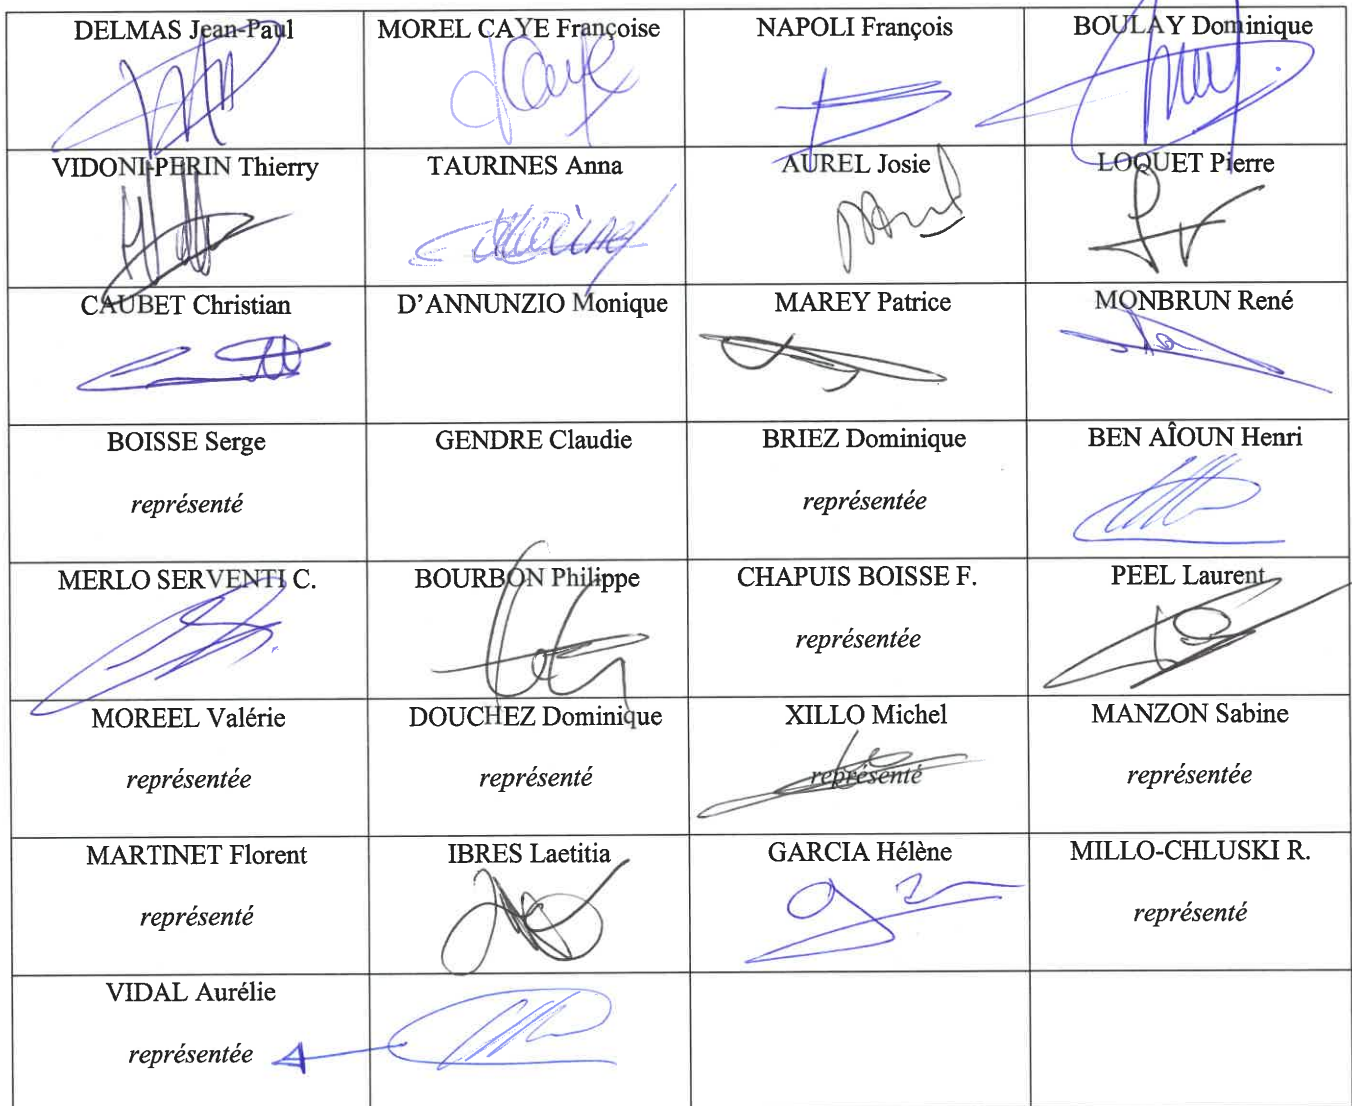 DELMAS Jean-Paul
MOREL CAYE Françoise
NAPOLI François
BOULAY Dominique
VIDONI-PERIN Thierry
TAURINES Anna
AUREL Josie
LOQUET Pierre
CAUBET Christian
D'ANNUNZIO Monique
MAREY Patrice
MONBRUN René
BOISSE Serge
représenté
GENDRE Claudie
BRIEZ Dominique
représentée
BEN AÎOUN Henri
MERLO SERVENTI C.
BOURBON Philippe
CHAPUIS BOISSE F.
représentée
PEEL Laurent
MOREEL Valérie
représentée
DOUCHEZ Dominique
représenté
XILLO Michel
représenté
MANZON Sabine
représentée
MARTINET Florent
représenté
IBRES Laetitia
GARCIA Hélène
MILLO-CHLUSKI R.
représenté
VIDAL Aurélie
représentée